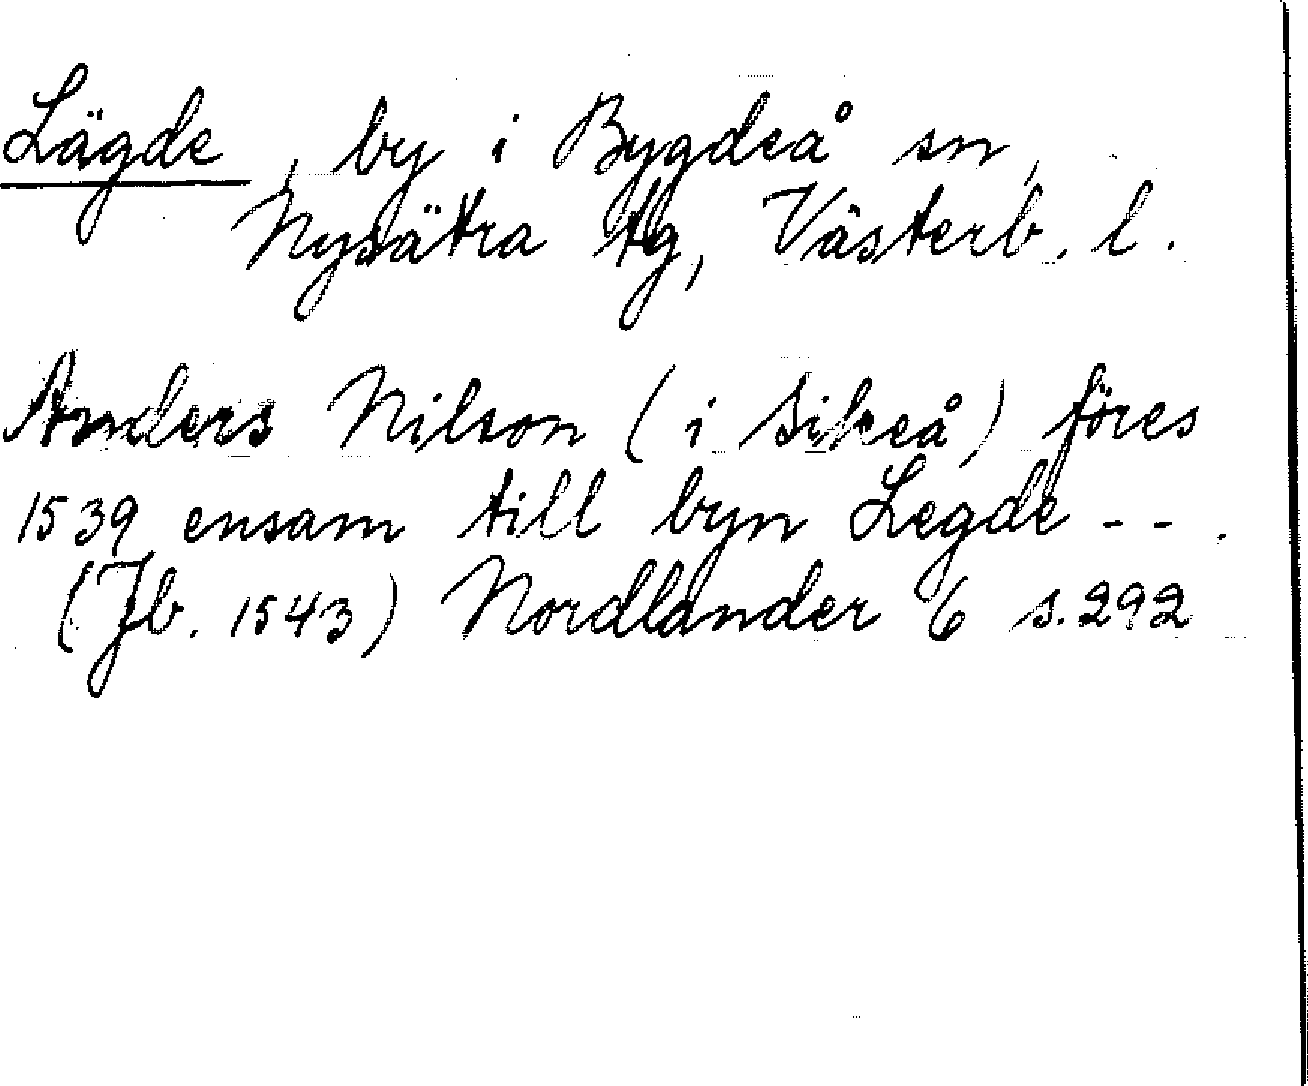 Lägde, by i Bygdeå sn,
Nysätra tg, Västerb. l.
Anders Nilson (i Sikeå) föres
1539 ensam till byn Legde - - .
(Jb. 1543) Nordlander 6 s. 292